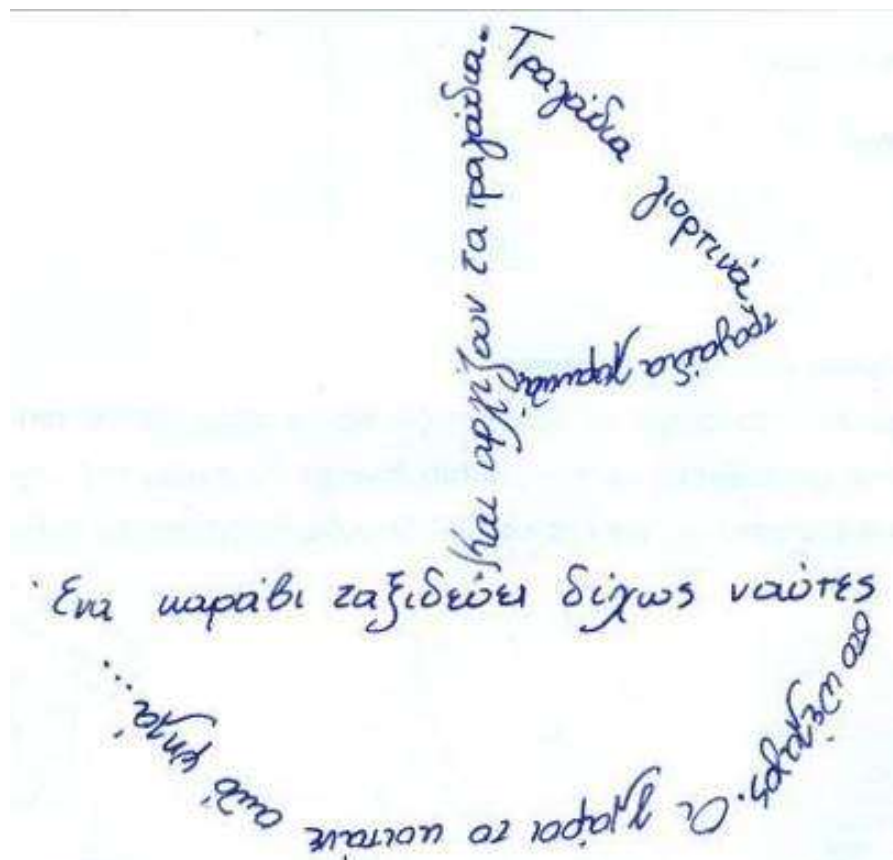 Ένα καράβι ταξιδεύει δίχως ναύτες
στο πέλαγος. Οι γλάροι το κοιτάνε από ψηλά...
και του τα τραγούδια.
Τραγούδια γιορτινά,
τραγούδια